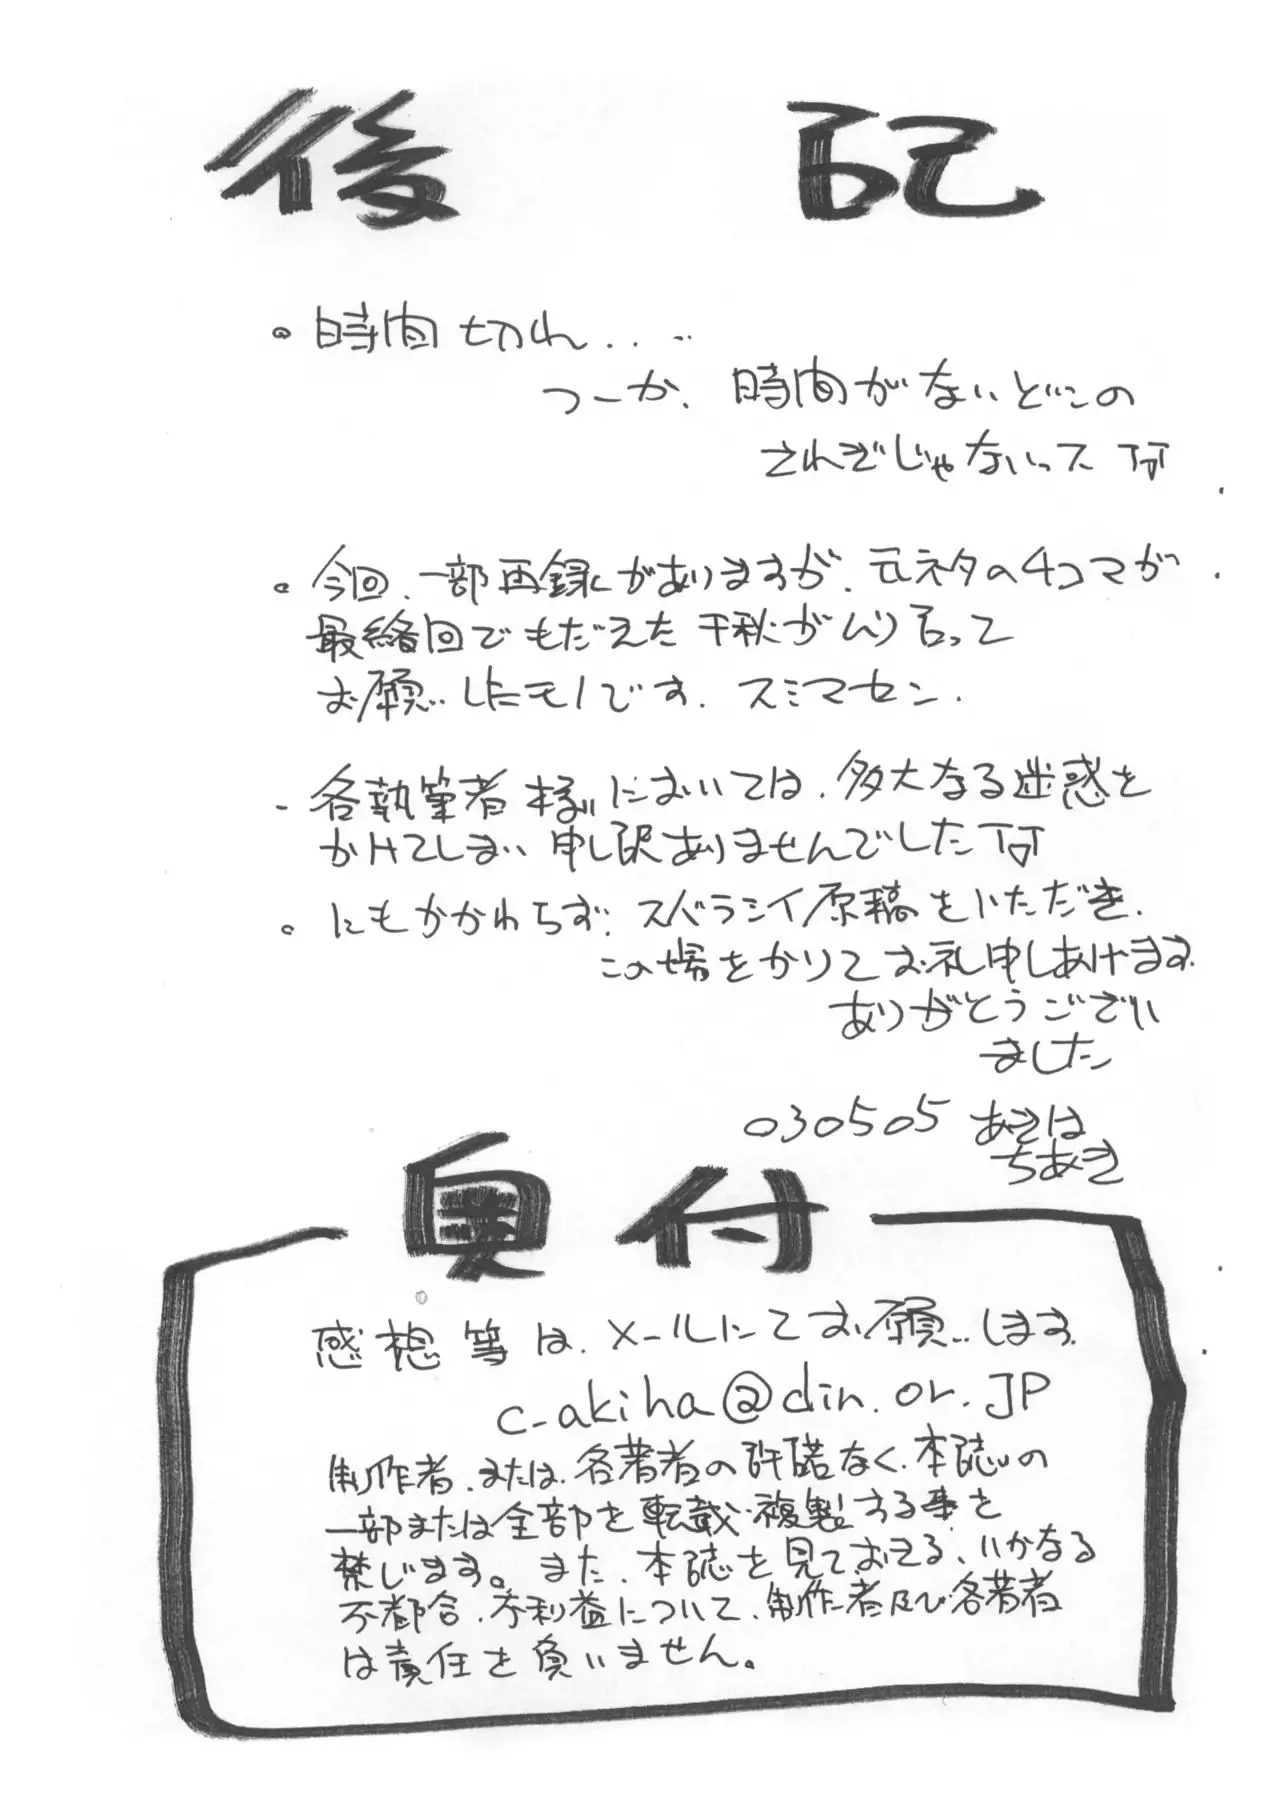 後記
・時間切れ‥‥
つーか、時間がないどこの
さわぎじゃないって
・今回、一部再録がありますが、元ネタの4コマが
最終回でもだえた千秋がムリ言って
お願いしたモノです。スミマセン.
- 各執筆者様においては、多大なる迷惑を
かけてしまい申し訳ありませんでした
・にもかかわらず、スバラシイ原稿をいただき、
この場をかりてお礼申しあげます
ありがとうござい
ました
030505 あきは
ちあき
奥付
感想等は、メールにてお願いします
c-akiha@din.or.JP
制作者、または、各著者の許諾なく、本誌の
一部または全部を転載・複製する事を
禁じます。また、本誌を見ておきる、いかなる
不都合、不利益について、制作者及び各著者
は責任を負いません。